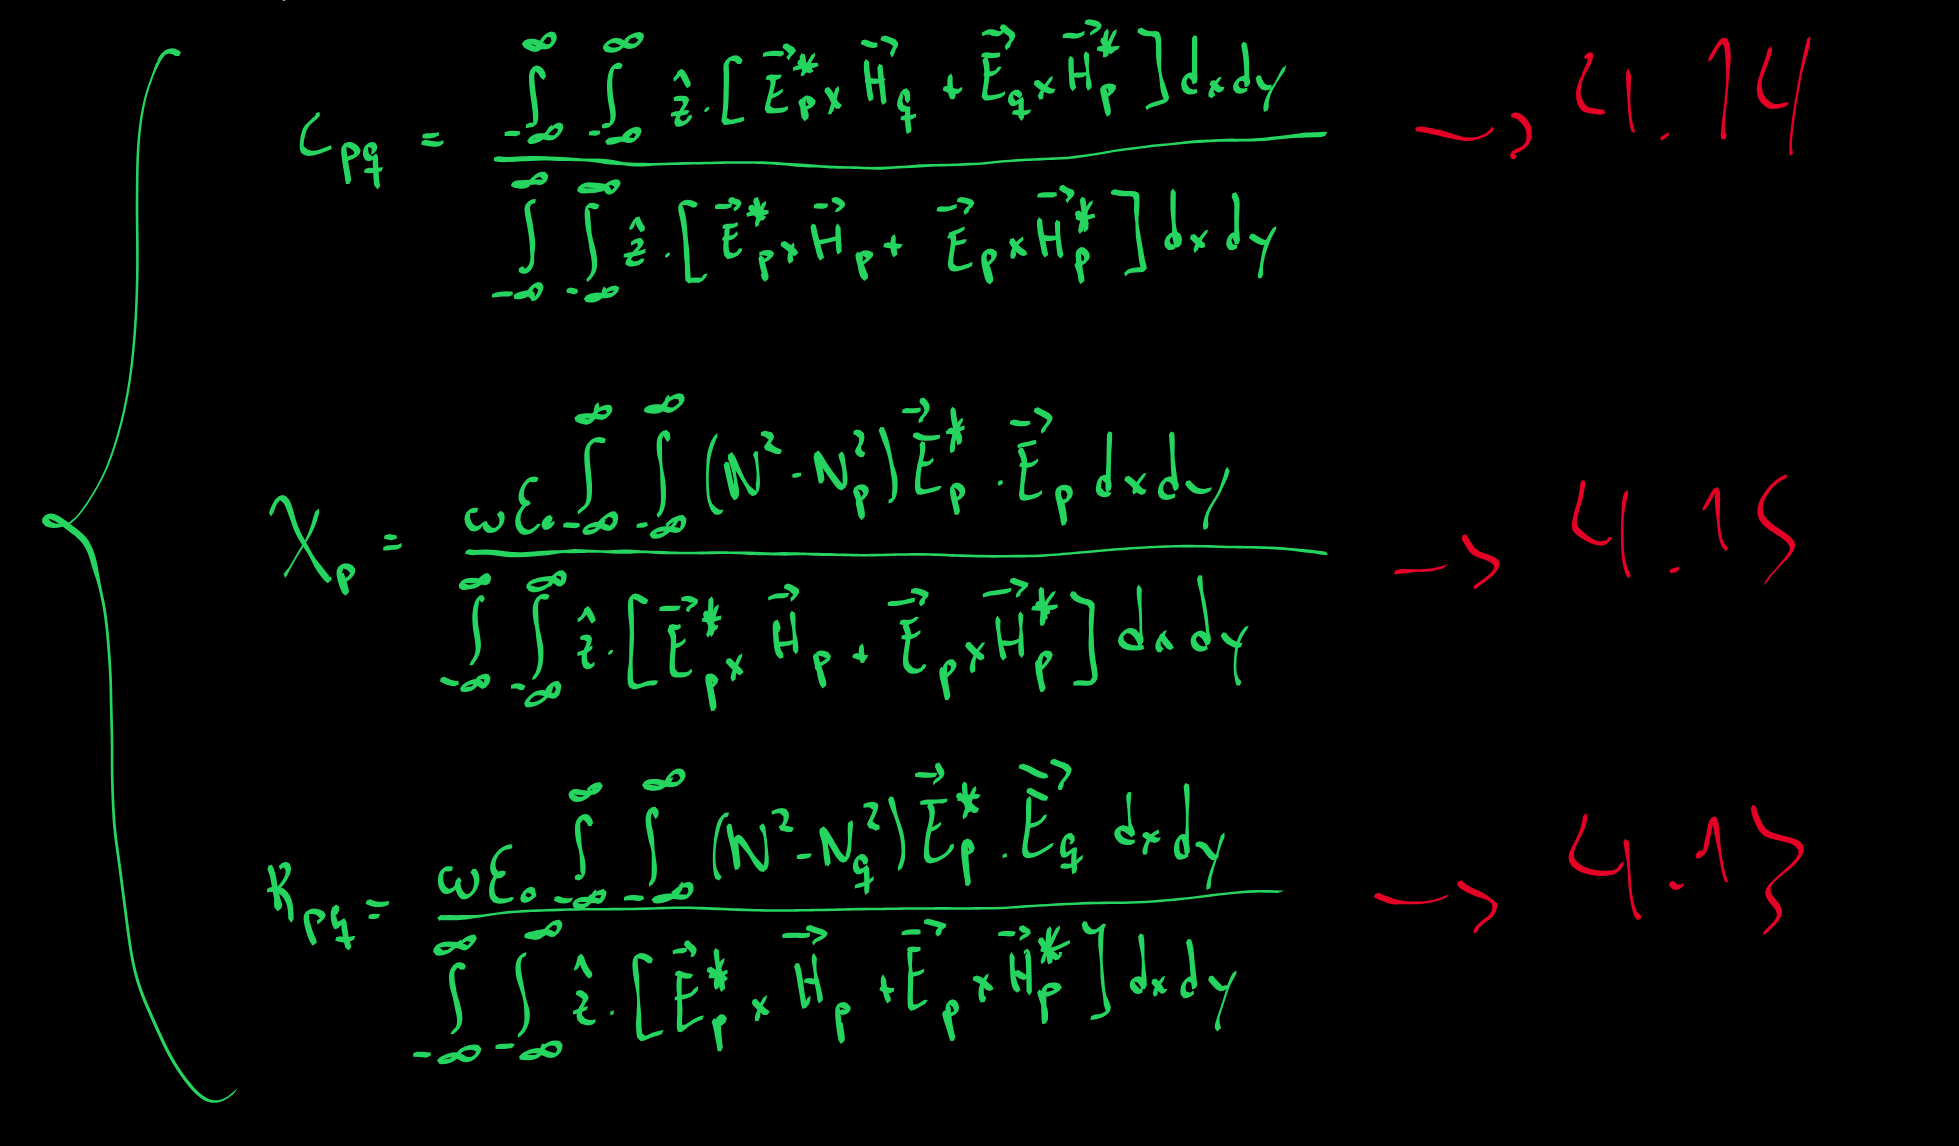 C_{pq} = \frac{\int_{-\infty}^{\infty} \int_{-\infty}^{\infty} \hat{z} \cdot [\vec{E}_p^* \times \vec{H}_q + \vec{E}_q \times \vec{H}_p^*] dxdy}{\int_{-\infty}^{\infty} \int_{-\infty}^{\infty} \hat{z} \cdot [\vec{E}_p^* \times \vec{H}_p + \vec{E}_p \times \vec{H}_p^*] dxdy} → 4.14
χ_p = \frac{ωε_0 \int_{-\infty}^{\infty} \int_{-\infty}^{\infty} (N^2 - N_p^2) \vec{E}_p^* \cdot \vec{E}_p dxdy}{\int_{-\infty}^{\infty} \int_{-\infty}^{\infty} \hat{z} \cdot [\vec{E}_p^* \times \vec{H}_p + \vec{E}_p \times \vec{H}_p^*] dxdy} → 4.15
K_{pq} = \frac{ωε_0 \int_{-\infty}^{\infty} \int_{-\infty}^{\infty} (N^2 - N_q^2) \vec{E}_p^* \cdot \vec{E}_q dxdy}{\int_{-\infty}^{\infty} \int_{-\infty}^{\infty} \hat{z} \cdot [\vec{E}_p^* \times \vec{H}_p + \vec{E}_p \times \vec{H}_p^*] dxdy} → 4.13